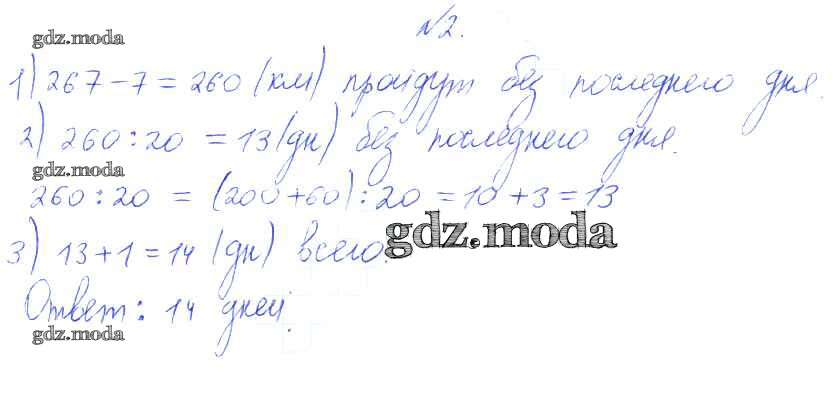 №2.
gdz.moda
1) 267-7=260 (км) пройдут без последнего дня.
2) 260:20 =13(дн) без последнего дня.
gdz.moda
260:20 = (200+60):20 =10+3=13
3) 13+1=14 (дн) всего.
gdz.moda
Ответ: 14 дней.
gdz.moda